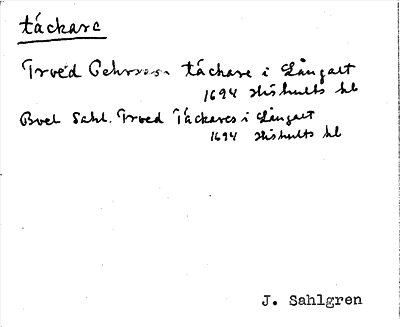 täckare
Troed Pehrsson täckare i Långalt
1694 Hishults kb
Boel Sahl. Troed Täckares i Långalt
1694 Hishults kb
J. Sahlgren